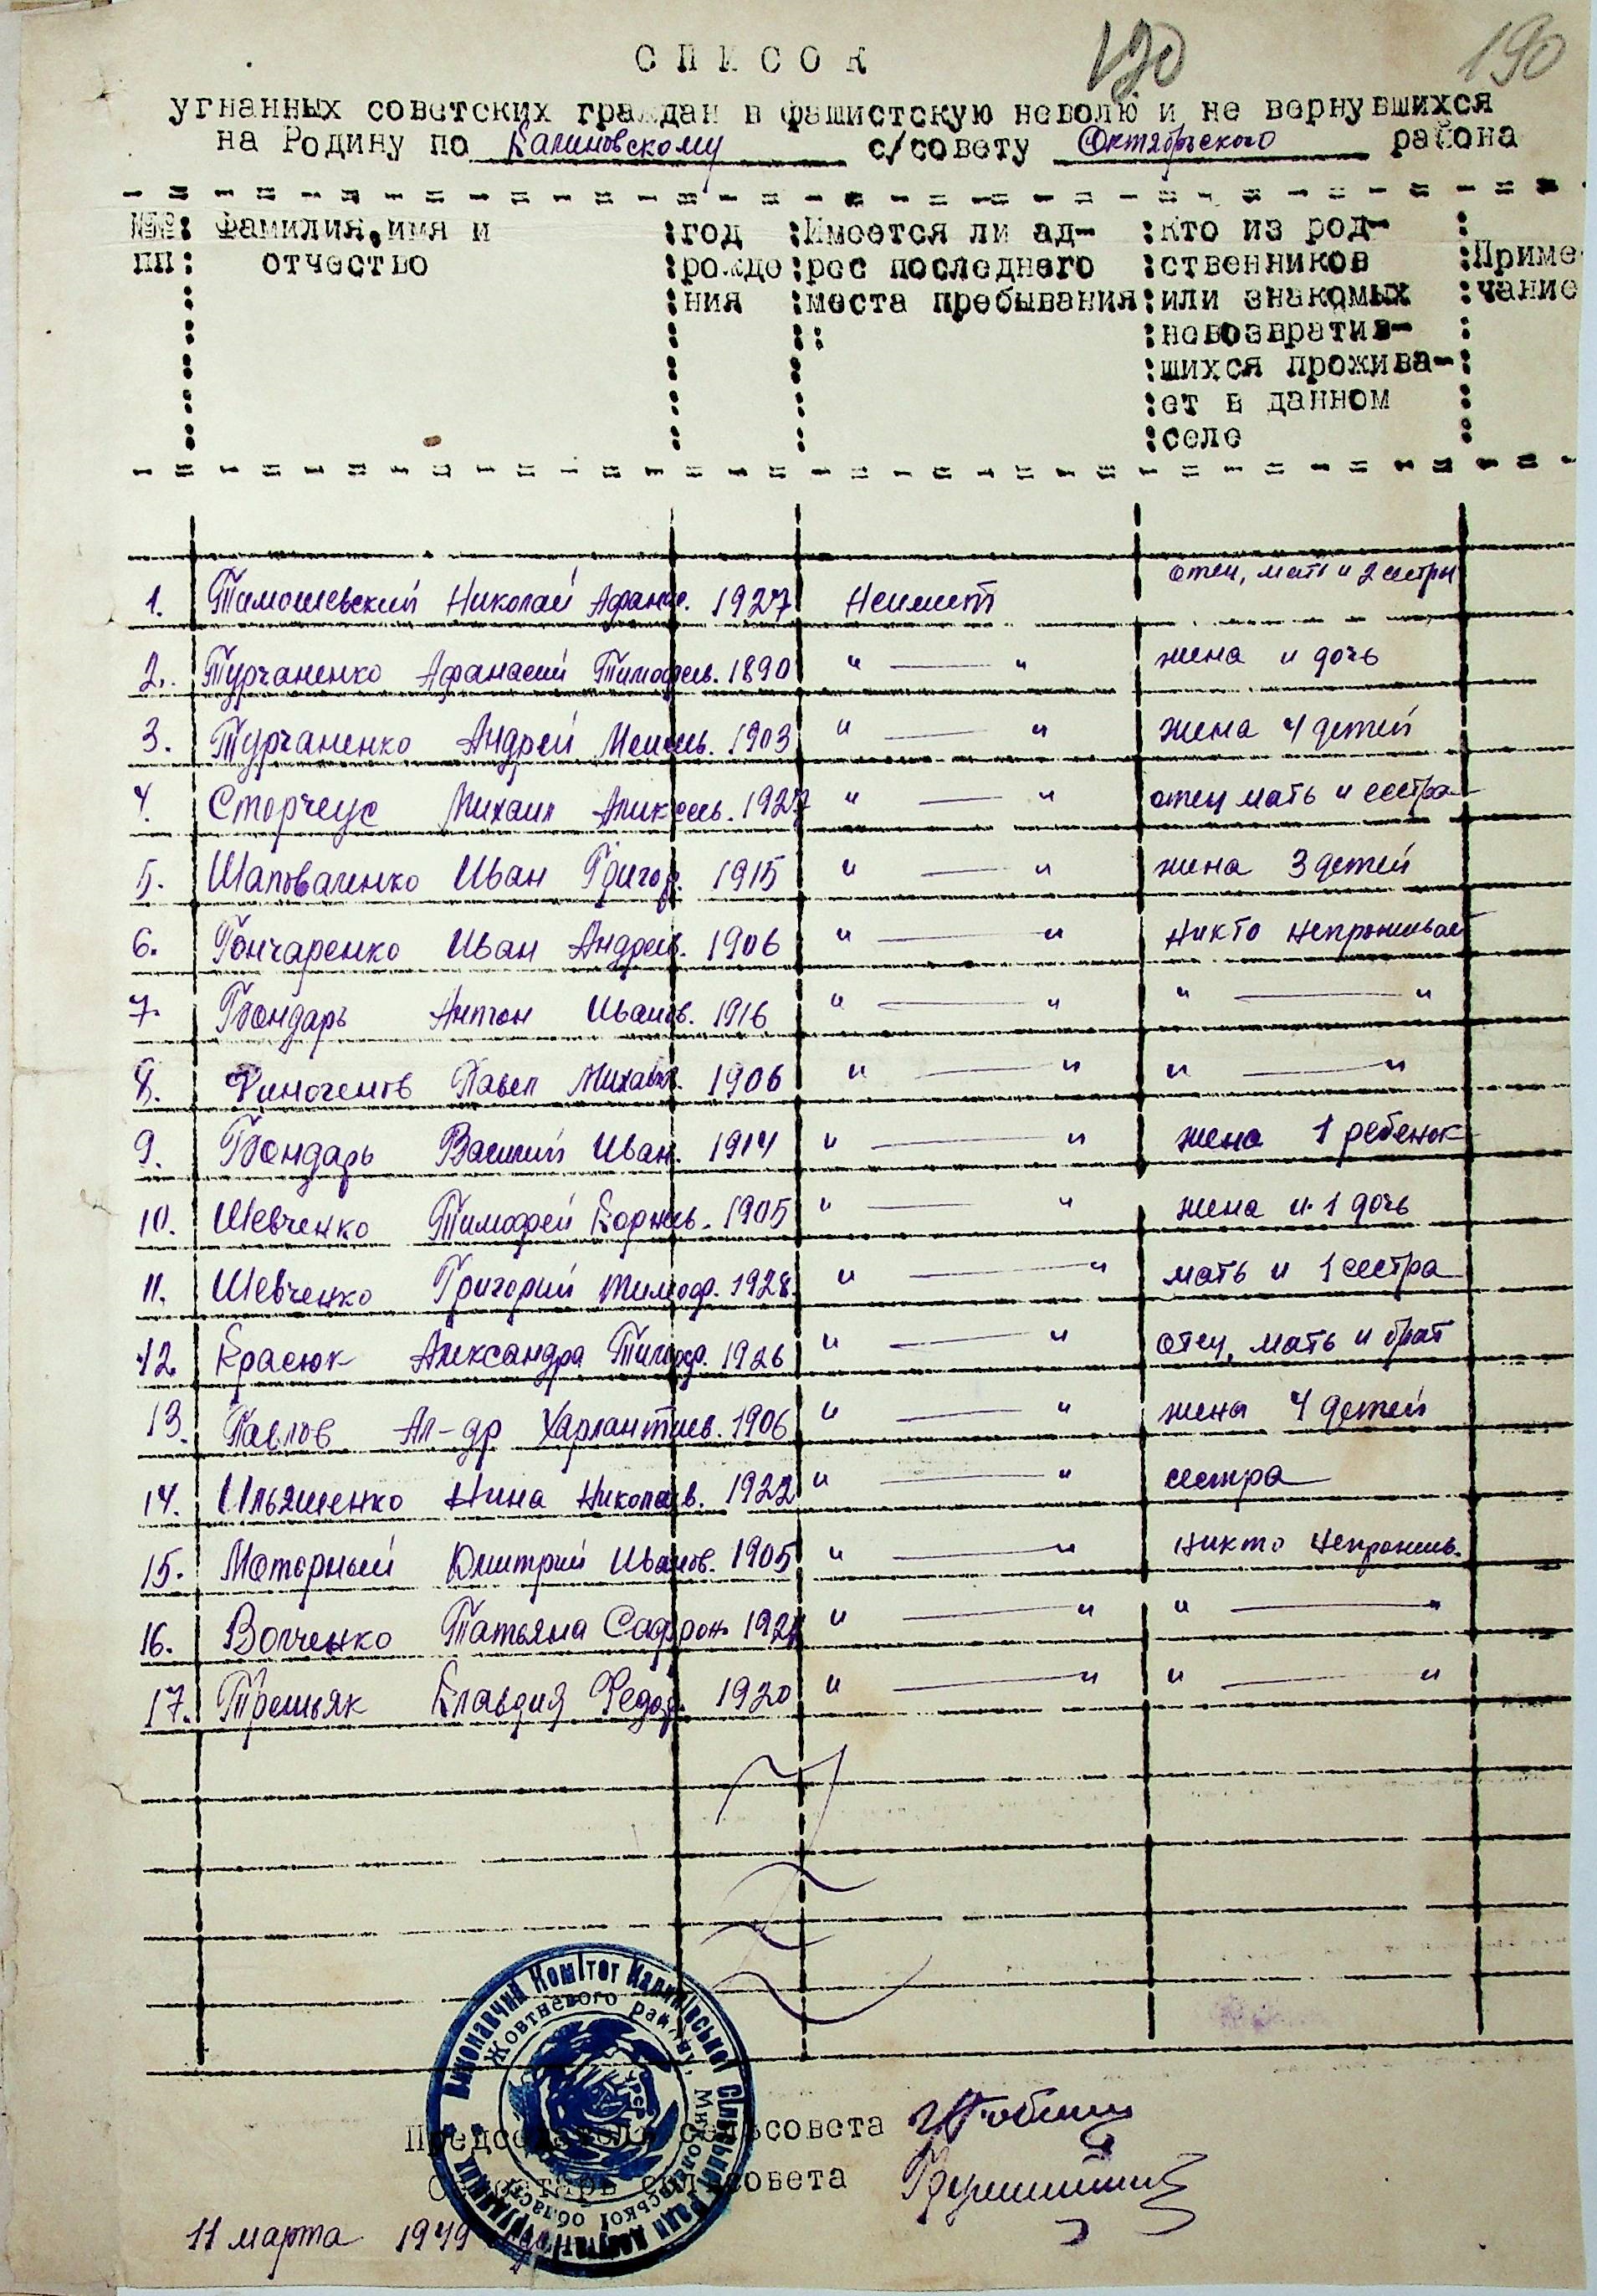 190
190
СПИСОК
угнанных советских граждан в фашистскую неволю и не вернувшихся
на Родину по Калиновскому с/совету Октябрьского района
№№ пп : Фамилия, имя и отчество : год рожде ния : Имеется ли ад- рес последнего места пребывания : кто из род- ственников или знакомых невозвратив- шихся прожива- ет в данном селе : Приме- чание
1. Тимошевский Николай Афанас. 1927 Неимет отец, мать и 2 сестры
2. Турчаненко Афанасий Тимофеев. 1890 " — " жена и дочь
3. Турчаненко Андрей 1903 " — " жена 4 детей
4. Сторчеус Михаил Алексеев. " — " отец мать и сестра
5. Шаповаленко Иван Григор. 1915 " — " жена 3 детей
6. Гончаренко Иван Андреев. 1906 " — " никто непроживает
7. Бондарь Антон Иванов. 1916 " — " " — "
8. Финогенов Павел Михайл. 1906 " — " " — "
9. Бондарь Василий Иван. 1914 " — " жена 1 ребенок
10. Шевченко Тимофей Корнеев. 1905 " — " жена и 1 дочь
11. Шевченко Григорий Тимоф. 1928 " — " мать и 1 сестра
12. Красюк Александра 1926 " — " отец, мать и брат
13. Павлов Ал-др Харлантиев. 1906 " — " жена 4 детей
14. Ильяшенко Нина Николаев. 1922 " — " сестра
15. Моторный Дмитрий Иванов. 1905 " — " никто непрожив.
16. Волченко Татьяна Сафрон. " — " " — "
17. Третьяк Клавдия Федор. 1920 " — " " — "
Виконавчий Комітет Калинівської сільської Ради депутатів трудящих
Жовтневого району, Миколаївської області
УРСР
Председатель сельсовета
Секретарь сельсовета
11 марта 1949